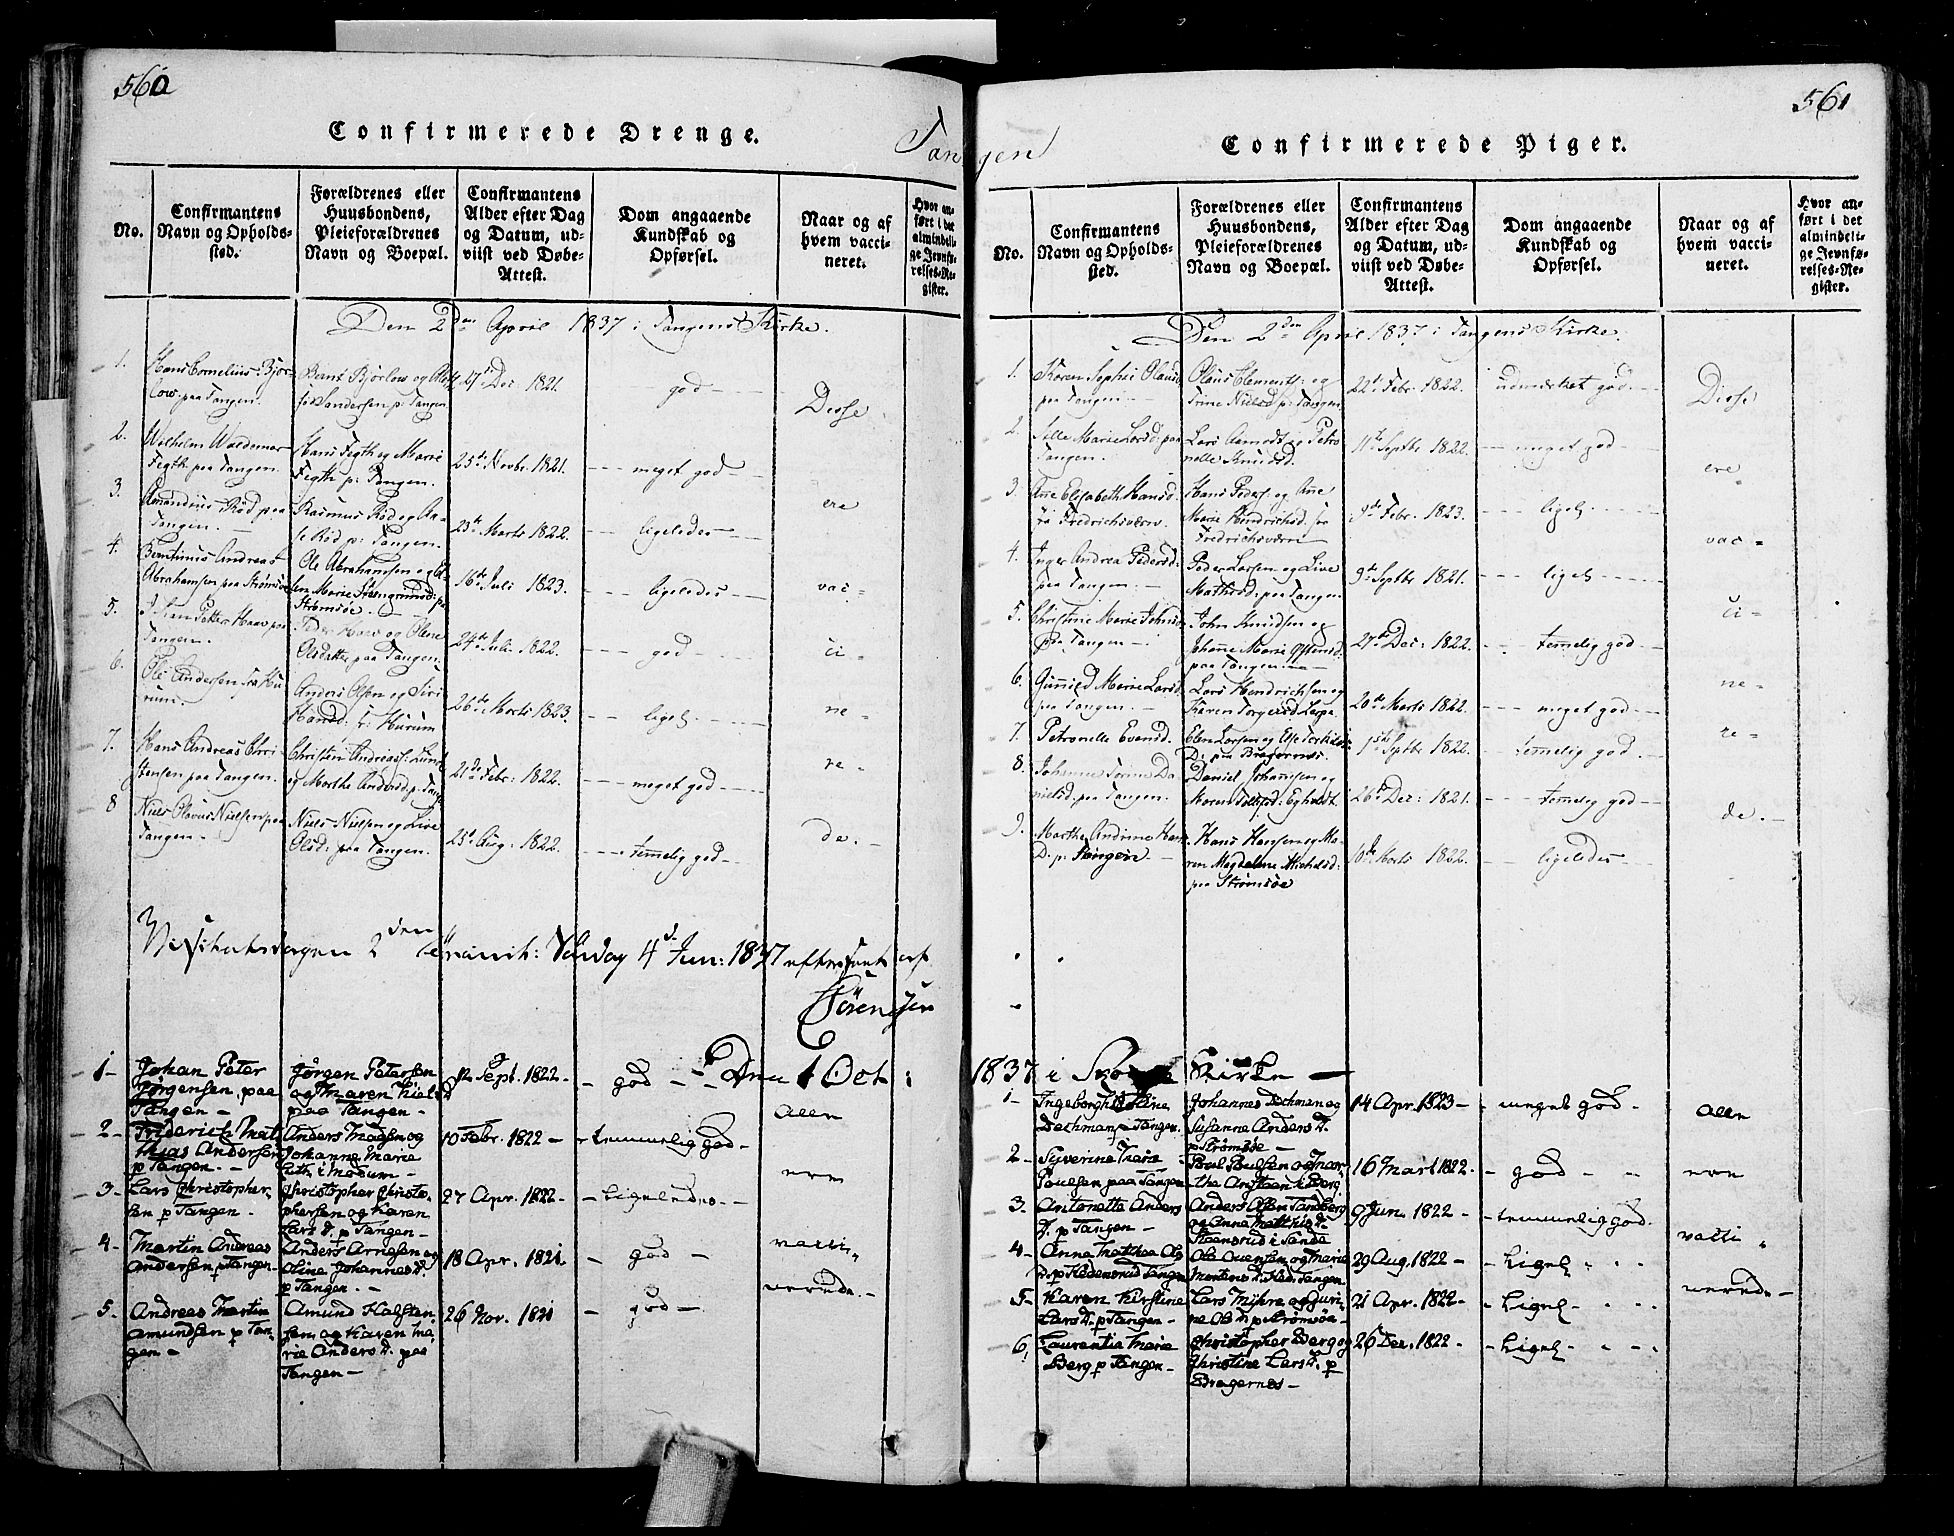 560
Confirmerede Drenge.
Tangen
No.
Confirmantens
Navn og Opholds-
sted.
Forældrenes eller
Huusbondens,
Pleieforældrenes
Navn og Boepæl.
Confirmantens
Alder efter Dag
og Datum, ud-
viist ved Døbe-
Attest.
Dom angaaende
Kundskab og
Opførsel.
Naar og af
hvem vacci-
neret.
Hvor an-
ført i det
almindeli-
ge Jevnfø-
relses-Re-
gister.
Den 2den April 1837 i Tangens Kirke.
1. Hans Cornelius Bjør-
low paa Tangen.
Bernt Bjørlow og
Andersen p: Tangen
17de Dec: 1821.
god
Disse
2. Wilhelm Waldemar
Fegth paa Tangen.
Hans Fegth og Marie
Fegth p: Tangen.
25de Novbr. 1821.
meget god
3. Amandius Rød paa
Tangen.
Rasmus Rød og Aa-
se Rød p: Tangen.
23de Marts 1822.
ligeledes
ere
4. Berntinus Andreas
Abrahamsen paa Strømsøe
Ole Abrahamsen og El-
sen Marie p:
Strømsøe.
16de Juli 1823.
ligeledes
vac-
5. Petter Haav paa
Tangen.
Peder Haav og Olene
Olsdatter paa Tangen.
24de Juli 1822.
god
ci-
6. Ole Andersen fra Hu-
rum.
Anders Olsen og Siri
Hansd: i Hurum
26de Marts 1823.
ligel.
ne-
7. Hans Andreas Chri-
stensen paa Tangen.
Christen Andreas: Lund
og Marthe Andersd. p: Tang.
21de Febr: 1822.
meget god
re-
8 Niels Olavus Nielsen paa
Tangen.
Niels Nielsen og Live
Olsd: paa Tangen.
25de Aug: 1822.
temelig god
de.
Visitatsdagen 2den Søndag 4d. Jun: 1837 efterseet af
Sørensen
Den 1 Oct:
1 Johan Peter
Jørgensen, paa
Tangen
Jørgen Petersen
og Maren Niels D
paa Tangen
12 Sept. 1822
god
Alle
2 Friderich Mat-
thias Andersen
p Tangen.
Anders Madsen og
Johanne Marie
i Modum
10 Febr. 1822
temmelig god
ere
3 Lars Christopher-
sen p Tangen.
Christopher Christo-
phersen og Karen
Lars D. p Tangen
27 Apr. 1822
Ligeledes
4 Martin Andreas
Andersen p Tangen
Anders Arrigsen og
Oline Johannes D.
p Tangen.
18 Apr. 1821
god
vacci-
5. Andreas Martin
Amundsen p Tan-
gen
Amund Halsten-
sen og Karen Ma-
rie Anders D. paa
Tangen
26 Nov. 1821
god
nerede.
561
Confirmerede Piger.
No.
Confirmantens
Navn og Opholds-
sted.
Forældrenes eller
Huusbondens,
Pleieforældrenes
Navn og Boepæl.
Confirmantens
Alder efter Dag
og Datum, ud-
viist ved Døbe-
Attest.
Dom angaaende
Kundskab og
Opførsel.
Naar og af
hvem vacci-
neret.
Hvor an-
ført i det
almindeli-
ge Jevnfø-
relses-Re-
gister.
Den 2den April 1837 i Tangens Kirke.
1. Karen Sophie Olausd.
paa Tangen
Olaus Clements: og
Trine Nielsd p: Tangen
22de Febr. 1822.
udmærket god
Disse
2. Sille Marie Larsd. paa
Tangen.
Lars Asmodt og Petro
nelle Knudsd.
11te Septbr 1822.
meget god
ere
3. Ane Elisabeth Hansd.
fra Fredrichsværn.
Hans Peders: og Ane
Marie Hendrichsd. fra
Fredrichsværn
9de Febr. 1823.
ligel.
vac-
4. Inger Andrea Pedersd:
paa Tangen
Peder Larsen og Live
Mathisd: paa Tangen
9de Septbr 1821.
ligel.
5. Christine Marie Johnsd
paa Tangen
John Knudsen og
Johanne Marie Ostensd:
paa Tangen
27de Dec: 1822.
temelig god
ci-
6. Gunild Marie Larsd.
paa Tangen
Lars Hendrichsen og
Karen Torgersd
20de Marts 1822.
meget god
ne-
7. Petronelle Evensd.
Even Larsen og Else Torkilds
D: paa Bragernes.
1ste Septbr 1822.
temelig god
re-
8. Johanne Torine Da-
nielsd. paa Tangen.
Daniel Johannsen og
Maren Tollefsd: Egholdt.
26de Dec: 1821.
temelig god
9. Marthe Andrine Hans
D. p: Tangen
Hans Hansen og Ma-
ren Magdalene Michelsd:
paa Strømsøe
10de Marts 1822.
ligeledes
de.
1837 i Kirke
1 Ingeborgh Oline
Dechman p Tangen.
Johannes Dechman og
Susanne Anders D.
p Strømsøe
14 Apr. 1823
meget god
Alle
2 Syverine Marie
Poulsen paa Tangen
Poul Poulsen og Mar-
the Aristsen
16 Mart 1822.
god
ere
3. Antonette Anders
D. p Tangen
Anders Olsen Tandberg
og Anna Matthis D.
Steensrud i Sande
9 Jun. 1822
temmelig god.
vacci
4 Anna Matthea Ols
D. p Tangen
Ole Evensen og Marie
Mortens D. Tangen
29 Aug. 1822
Ligel
5 Karen Kirstine
Lars D. p Tangen
Lars Myhre og Guri-
ne Ols D p Strømsøe
21 Apr. 1822
Ligel
nerede
6. Laurentia Marie
Berg p Tangen
Christopher Berg og
Christine Lars D. p
Bragernes
26 Dec. 1822
Ligel